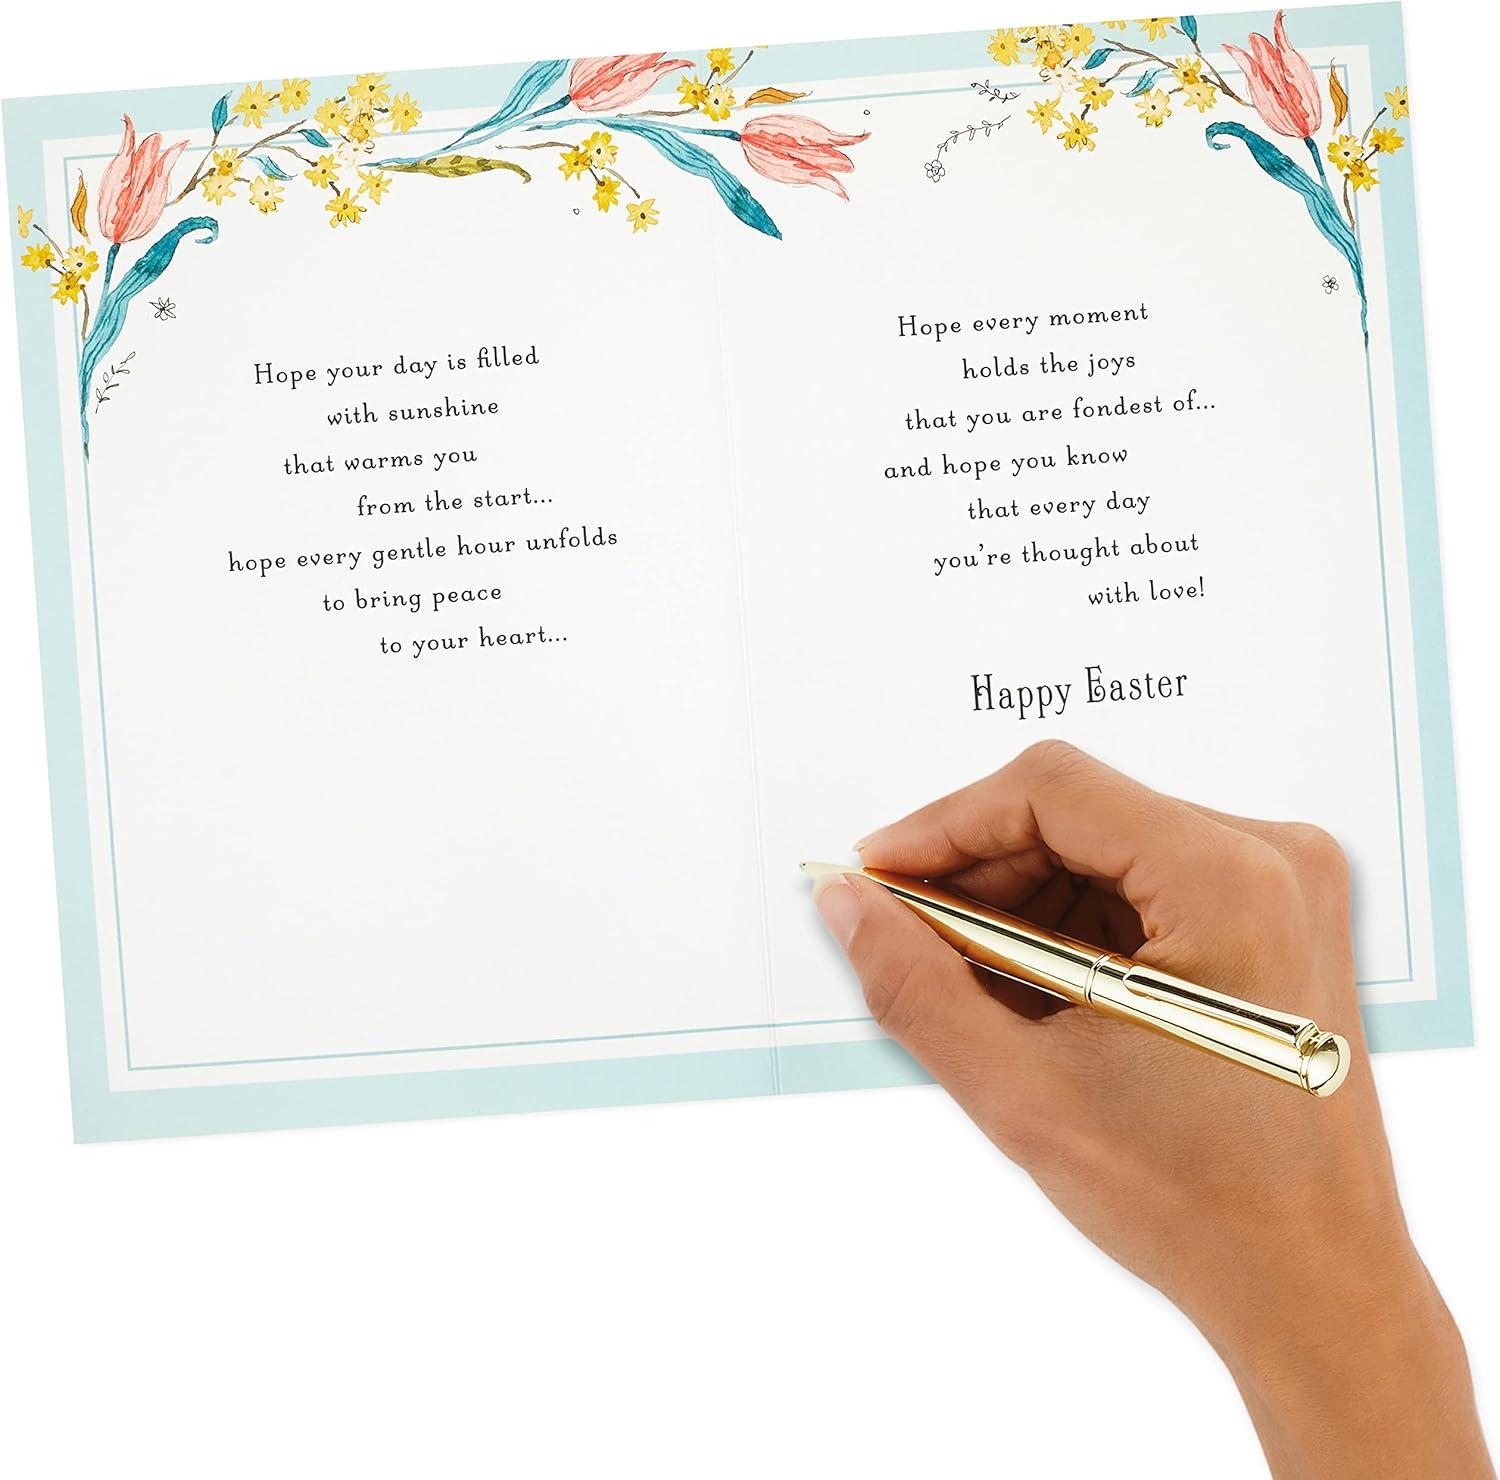 Hope your day is filled
with sunshine
that warms you
from the start...
hope every gentle hour unfolds
to bring peace
to your heart...
Hope every moment
holds the joys
that you are fondest of...
and hope you know
that every day
you're thought about
with love!
Happy Easter